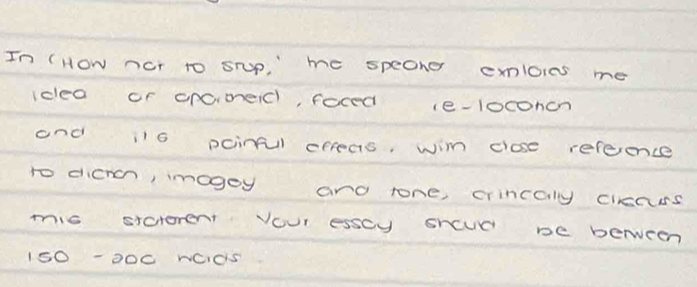 In 'How not to stop,' the speaker explores the
idea of apartheid, forced re-location
and its painful effects. With close reference
to diction, imagey and tone, critically discuss
this statement. Your essay should be between
150 - 200 words.